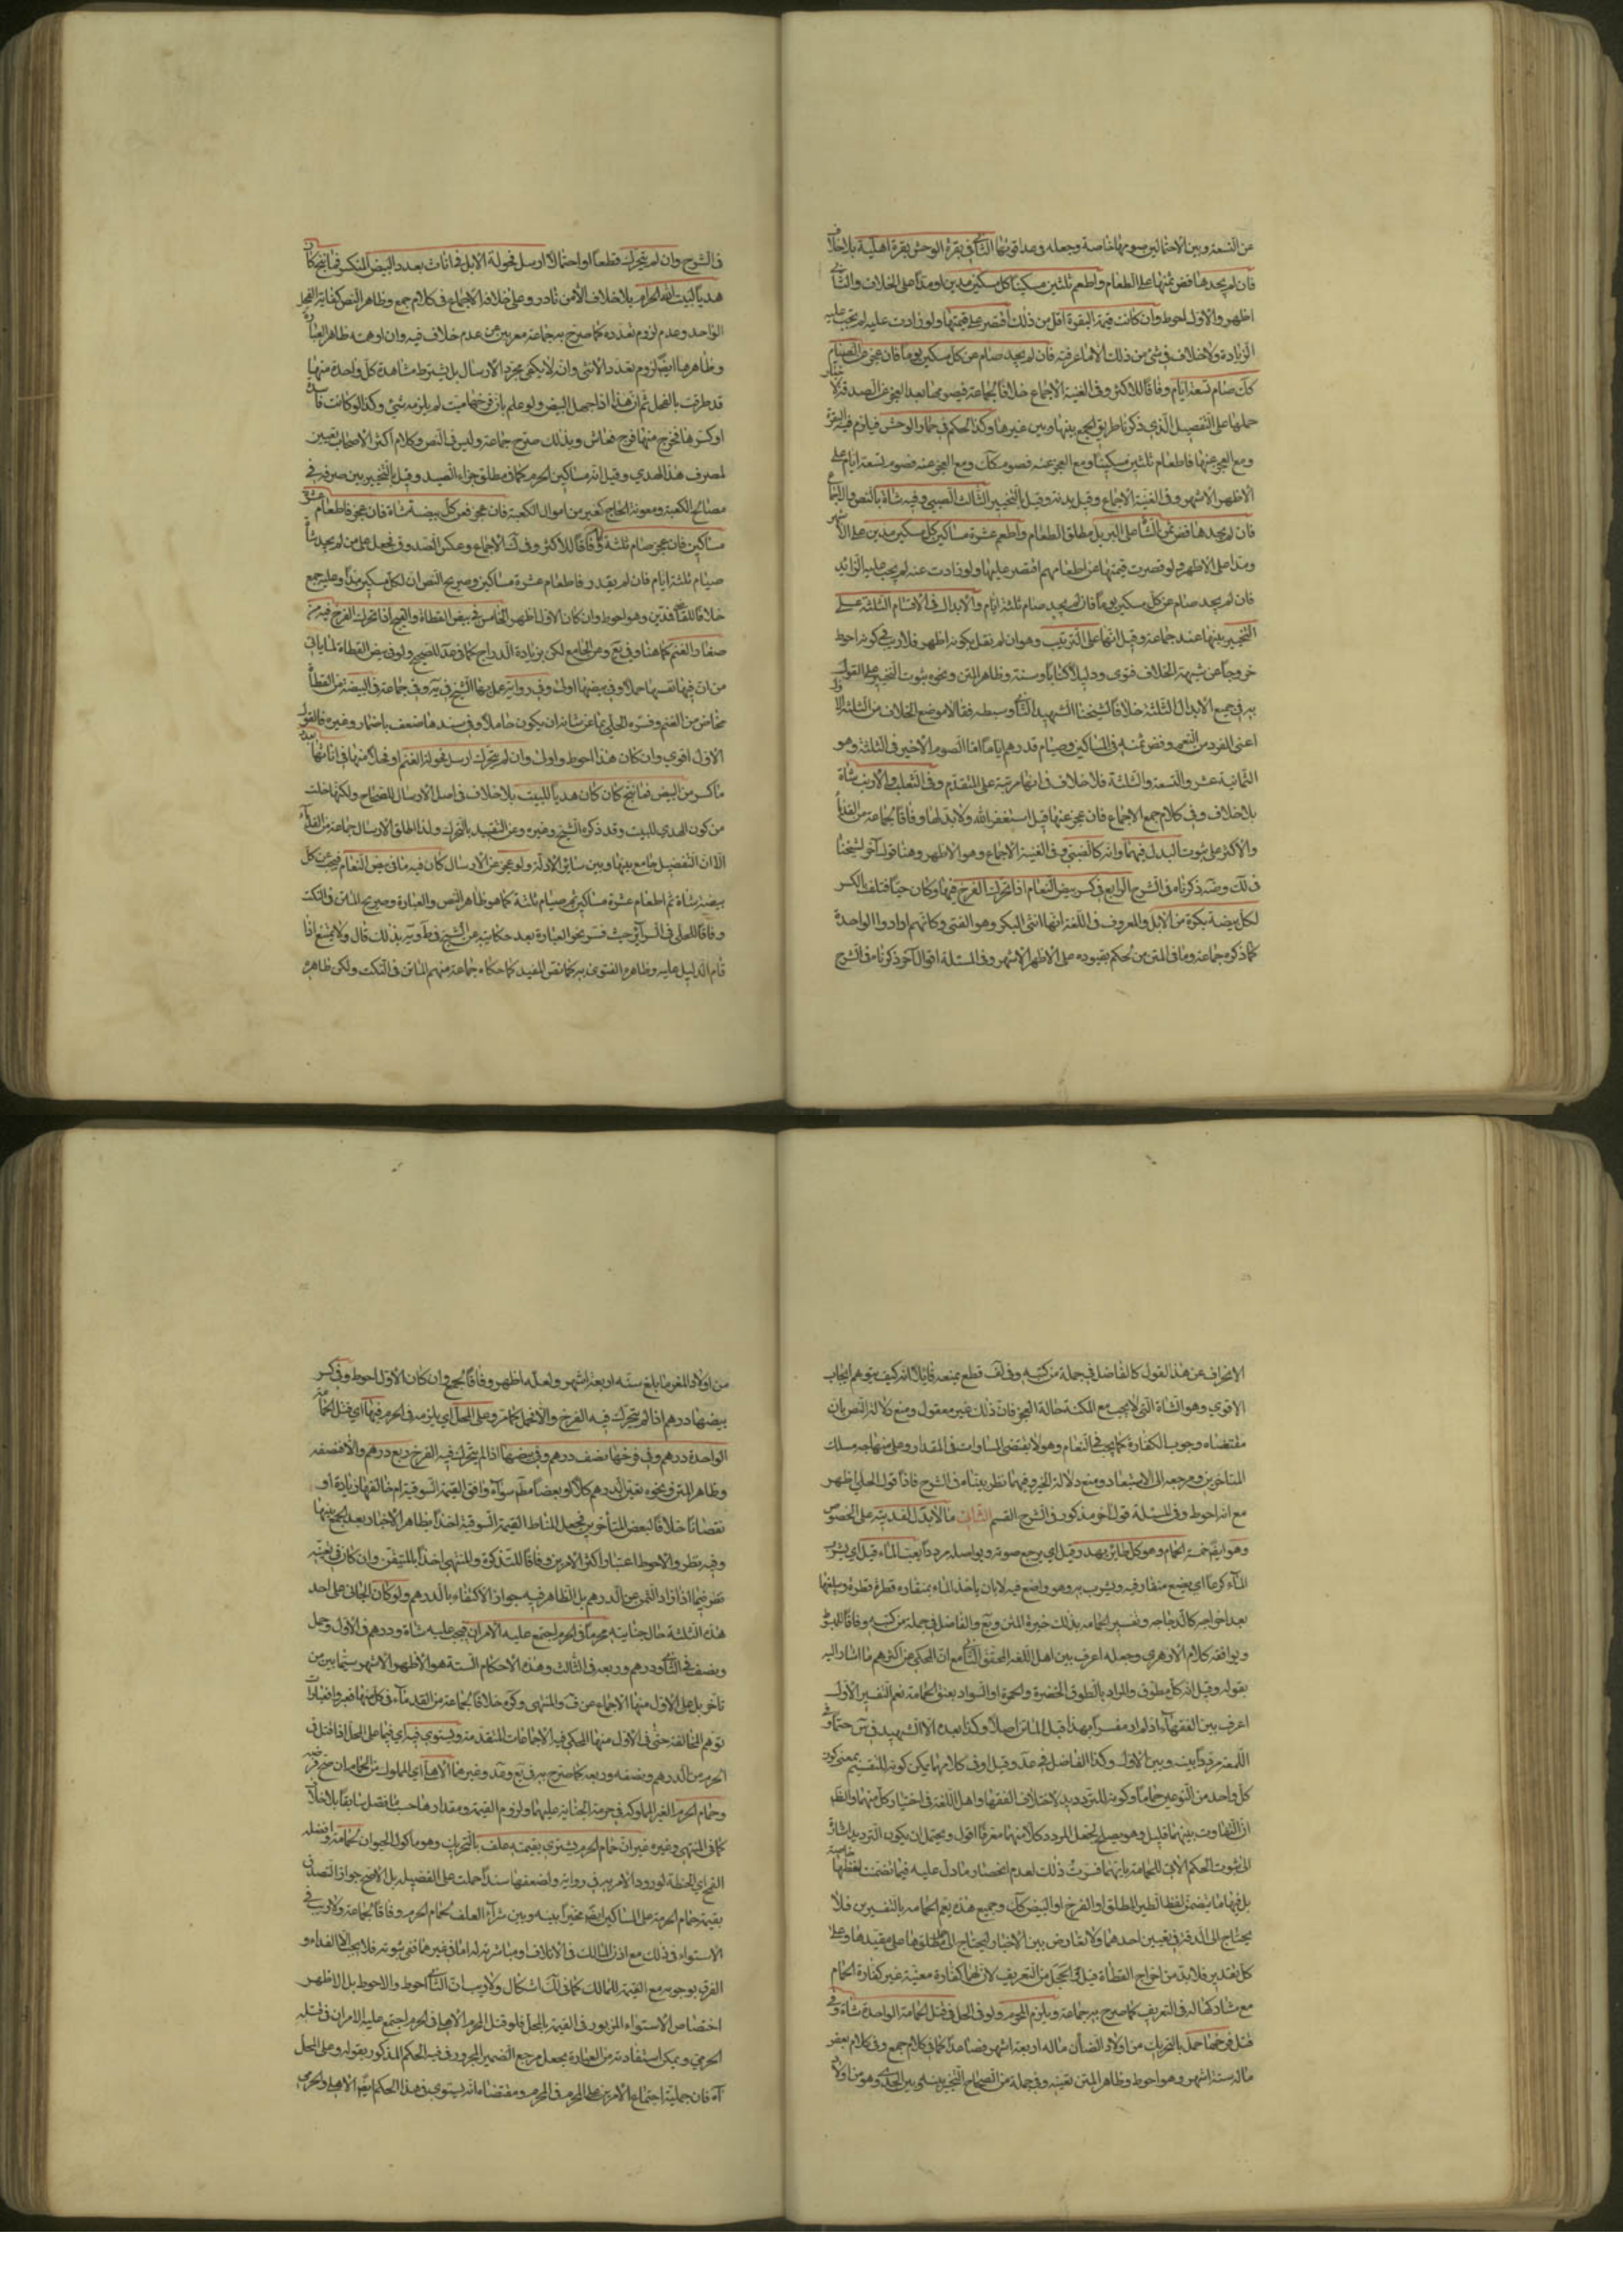 عن التسعة وبين الاحتمالين صومها خاصة وجعله وصدا قوتها الثاني في بقرة الوحش بقرة اهلية بلا خلاف
فان لم يجدها فض ثمنها على الطعام واطعم ثلثين مسكينا كل مسكين مدين او مدا على الخلاف والثاني
اظهر والاول احوط وان كانت قيمة البقرة اقل من ذلك اقتصر على قيمتها ولو زادت عليه لم تجب عليه
الزيادة ولا خلاف في شئ من ذلك الا ما عرفته فان لم يجد صام عن كل مسكين يوما فان عجز عن الصيام
كك صام تسعة ايام وفاقا للاكثر وفي الغنية الاجماع خلافا لجماعة فيصومها بعد العجز عن الصدقة لا
حملها على التفصيل الذي ذكرنا طريق الجمع بينها وبين غيرها وكذا الحكم في حمار الوحش فيلزم فيه البقرة
ومع العجز عنها فاطعام ثلثين مسكينا ومع العجز عنه فصوم كك ومع العجز عنه فصوم تسعة ايام على
الاظهر الاشهر وفي الغنية الاجماع وقيل بدنة وقيل بالتخيير الثالث الظبي وفيه شاة بالنص والاجماع
فان لم يجدها فض ثمن الشاة على البر بل مطلق الطعام واطعم عشرة مساكين كل مسكين مدين على الاشهر
ومدا على الاظهر ولو قصرت قيمتها عن اطعامهم اقتصر عليها ولو زادت عنه لم يجب عليه الزائد
فان لم يجد صام عن كل مسكين يوما فان لم يجد صام ثلثة ايام والابدال في الاقسام الثلثة على
التخيير بينها عند جماعة وقيل انها على الترتيب وهو ان لم نقل بكونه اظهر فلا ريب في كونه احوط
خروجا عن شبهة الخلاف فتوى ودليلا كتابا وسنة وظاهر المتن ونحوه ثبوت التخيير على القول
به في جميع الابدال الثلثة خلافا لشيخنا الشهيد الثاني وسبطه فقالا موضع الخلاف من الثلثة الاول
اعني الفرد من النعم وفض ثمنه في المساكين وصيام قدرهم اياما اما الصوم الاخير في الثلثة وهو
الثمانية عشر والتسعة والثلثة فلا خلاف في انها مرتبة على المتقدم وفي الثعلب والارنب شاة
بلا خلاف وفي كلام جمع الاجماع فان عجز عنها قيل استغفر الله ولا بدل لها وفاقا لجماعة من القدماء
والاكثر على ثبوت البدل فيهما وانه كالظبي وفي الغنية الاجماع وهو الاظهر وهنا قول آخر لشيخنا
في لك وضه ذكرناه في الشرح الرابع في كسر بيض النعام اذا تحرك الفرخ فيها وكان حيا فتلف بالكسر
لكل بيضة بكرة من الابل والمعروف في اللغة انها انثى البكر وهو الفتى وكانهم ارادوا الواحدة
كما ذكره جماعة وما في المتن من الحكم بقيوده على الاظهر الاشهر وفي المسئلة اقوال آخر ذكرناه في الشرح
في الشرح وان لم يتحرك قطعا او احتمالا ارسل فحولة الابل في اناث بعدد البيض المنكسر فما ينتج كان
هديا لبيت الله الحرام بلا خلاف الا من نادر وعلى خلافه الاجماع في كلام جمع وظاهر النص كفاية الفحل
الواحد وعدم لزوم تعدده كما صرح به جماعة معربين عن عدم خلاف فيه وان اوهمته ظاهر العبارة
وظاهرها ايضا لزوم تعدد الانثى وانه لا يكفي مجرد الارسال بل يشترط مشاهدة كل واحدة منها
قد طرقت بالفحل ثم ان هذا اذا جهل البيض ولو علم بان فرخها ميت لم يلزمه شئ وكذا لو كانت فاسدة
او كسرها فخرج منها فرخ فعاش وبذلك صرح جماعة وليس في النص وكلام اكثر الاصحاب تعيين
لمصرف هذا الهدي وقيل انه مساكين الحرم كما في مطلق جزاء الصيد وقيل بالتخيير بين صرفه في
مصالح الكعبة ومعونة الحاج كغير من اموال الكعبة فان عجز فعن كل بيضة شاة فان عجز فاطعام عشرة
مساكين فان عجز صام ثلثة ايام وفاقا للاكثر وفي الاجماع وعكس الصدوق فجعل على من لم يجد شاة
صيام ثلثة ايام فان لم يقدر فاطعام عشرة مساكين وصريح النص ان لكل مسكين مدا وعليه جمع
خلافا للفاقدين وهو احوط وان كان الاول اظهر الخامس في بيض القطاة والقبج اذا تحرك الفرخ فيه من
صغار الغنم كما هنا وفي يع وعن الجامع لكن بزيادة الدراج كما في عد للصحيح ولو في بيض القطاة لما ياتي
من ان فيها نفسها حملا وفي بيضها اولى وفي رواية عمل بها الشيخ في ية وفي جماعة في البيضة من القطاة
مخاض من الغنم وفسره الحلي بما من شانه ان يكون حاملا وفي سندها ضعف باضمار وغيره فالقول
الاول اقوى وان كان هذا احوط واولى وان لم يتحرك ارسل فحولة الغنم او فحلا منها في اناثها بعدد
ما كسر من البيض فما ينتج كان هديا للبيت بلا خلاف في اصل الارسال للصحاح ولكنها خلت
من كون الهدي للبيت وقد ذكره الشيخ وغيره وعن التقييد بالتحرك ولذا اطلق الارسال جماعة من القدماء
الا ان التفصيل جامع بينها وبين سابق الادلة ولو عجز عن الارسال كان فيه ما في بيض النعام فيجب عن كل
بيضة شاة ثم اطعام عشرة مساكين ثم صيام ثلثة كما هو ظاهر النص والعبارة وصريح الماتن في النكت
وفاقا للحلي في السرائر حيث فسر نحو العبارة بعد حكايته عن الشيخ في ط وية بذلك قال ولا يمتنع اذا
قام الدليل عليه وظاهره الفتوى به كما نص المفيد كما حكاه جماعة منهم الماتن في النكت ولكن ظاهره
الانحراف عن هذا القول كالفاضل في جملة من كتبه وفي لف قطع بمنعه قائلا انه كيف يتوهم ايجاب
الاقوى وهو الشاة التي لا يجب مع المكنة حالة العجز فان ذلك غير معقول ومنع دلالة النص بان
مقتضاه وجوب الكفارة كما يجب في النعام وهو لا يقتضي المساوات في المقدار وعلى منهاجه مسلك
المتاخرين ومرجعه الى الاستبعاد ومنع دلالة الخبر وفيهما نظر بيناه في الشرح فاذا قول الحلي اظهر
مع انه احوط وفي المسئلة قول آخر مذكور في الشرح القسم الثاني ما لا بدل لفديته على الخصوص
وهو ايضا خمسة الحمام وهو كل طائر يهدر وقيل اي يرجع صوته ويواصله مرددا يعب الماء قيل اي يشرب
الماء كرعا اي يضع منقاره فيه ويشرب به وهو واضع فيه لا بان ياخذ الماء بمنقاره قطرة قطرة ويبلغها
بعد اخراجه كالدجاجة وتفسير الحمامة بذلك خيرة المتن ويع والفاضل في جملة من كتبه وفاقا للمبسوط
ويوافقه كلام الازهري وجعله اعرف بين اهل اللغة المحقق الثاني مع ان المحكي عن اكثرهم ما اشار اليه
بقوله وقيل انه كل مطوق والمراد بالطوق الخضرة والحمرة او السواد بعنق الحمامة نعم التفسير الاول
اعرف بين الفقهاء اذ لم ار مفسرا بهذا قبل الماتن اصلا وكذا بعده الا الشهيد في س حتما وفي
اللمعة مرددا بينه وبين الاول وكذا الفاضل في عد وقيل او في كلامهما يمكن كونه للتقسيم بمعنى كون
كل واحد من النوعين حماما وكونه للترديد لاختلاف الفقهاء واهل اللغة في اختيار كل منهما والظاهر
ان التفاوت بينهما قليل وهو يصلح لجعل المردد كلا منهما معرفا اقول ويحتمل ان يكون الترديد اشارة
الى ثبوت الحكم الاتي للحمامة بايهما فسرت ذلك لعدم انحصار ما دل عليه فيما تضمنت لفظها خاصة
بل فيها ما يتضمن لفظ الطير المطلق او الفرخ او البيض كك وجميع هذه يعم الحمامة بالتفسيرين فلا
يحتاج الى الدقة في تعيين احدهما ولا تعارض بين الاخبار ليحتاج الى حمل مطلقها على مقيدها وعلى
كل تقدير فلا بد من اخراج القطاة قيل والحجل من التعريف لان لهما كفارة معينة غير كفارة الحمام
مع مشاركتهما له في التعريف كما صرح به جماعة ويلزم المحرم ولو في الحل في قتل الحمامة الواحدة شاة وفي
قتل فرخها حمل بالتحريك من اولاد الضان ما له اربعة اشهر فصاعدا كما في كلام جمع وفي كلام بعض
ما له ستة اشهر وهو احوط وظاهر المتن تعينه وفي جملة من الصحاح التخيير بينه وبين الجدي وهو من اولاد
من اولاد المعز ما بلغ سنه اربعة اشهر ولعله اظهر وفاقا لجمع وان كان الاول احوط وفي كسر
بيضها درهم اذا لم يتحرك فيه الفرخ والا فحمل كما مر وعلى المحل اي يلزمه في الحرم فيها اي قتل الحمامة
الواحدة درهم وفي فرخها نصف درهم وفي بيضها اذا لم يتحرك فيه الفرخ ربع درهم والا فنصفه
وظاهر المتن ونحوه تعين الدرهم كلا او بعضا مطلقا سواء وافق القيمة السوقية ام خالفها زيادة او
نقصانا خلافا لبعض المتأخرين فجعل المناط القيمة السوقية اخذا بظاهر الاخبار بعد الجمع بينها
وفيه نظر والاحوط اعتبار اكثر الامرين وفاقا للتذكرة والمنتهى اخذا بالمتيقن وان كان في تعينه
نظر فيما اذا زاد الثمن عن الدرهم بل الظاهر فيه جواز الاكتفاء بالدرهم ولو كان الجاني على احد
هذه الثلثة حال جنايته محرما في الحرم اجتمع عليه الامران فيجب عليه شاة ودرهم في الاول وحمل
ونصف في الثاني ودرهم وربعه في الثالث وهذه الاحكام الستة هو الاظهر الاشهر سيما بين من
تاخر بل على الاول منها الاجماع عن ف والمنتهى وكره خلافا لجماعة من القدماء في كل منها فعبروا بعبارات
توهم المخالفة حتى في الاول منها المحكي فيه الاجماعات المتقدمة ويستوي فيه اي فيما على المحل اذا قتل في
الحرم من الدرهم ونصفه وربعه كما صرح به في يع وعد وغيرهما الاهلي اي المملوك من الحمام ان صح فرضه
وحمام الحرم الغير المملوكة في حرمة الجناية عليها ولزوم القيمة ومقدارها حسب ما فصل سابقا بلا خلاف
كما في المنتهى وغيره غير ان حمام الحرم يشترى بقيمته علف بالتحريك وهو ماكول الحيوان لحمامه وافضله
القمح اي الحنطة لورود الامر به في رواية ولضعفها سندا حملت على الفضيلة بل الاصح جواز التصدق
بقيمة حمام الحرم على المساكين ايضا مخيرا بينه وبين شراء العلف لحمام الحرم وفاقا لجماعة ولا ريب في
الاستواء في ذلك مع اذن المالك في الاتلاف او مباشرته له اما في غيرهما ففي ثبوته فلا يجب الا الفداء او
الفرق بوجوبه مع القيمة للمالك كما في لك اشكال ولا ريب ان الثاني احوط والاحوط بل الاظهر
اختصاص الاستواء المزبور في القيمة بالمحل فلو قتل المحرم الاهلي في الحرم اجتمع عليه الامران في قتله
الحرمي ويمكن استفادته من العبارة بجعل مرجع الضمير المجرور في فيه الحكم المذكور بقوله وعلى المحل
آه فان جملية اجتماع الامرين على المحرم في الحرم ومقتضاه انه يستوي في هذا الحكم ايضا الاهلي والحرمي